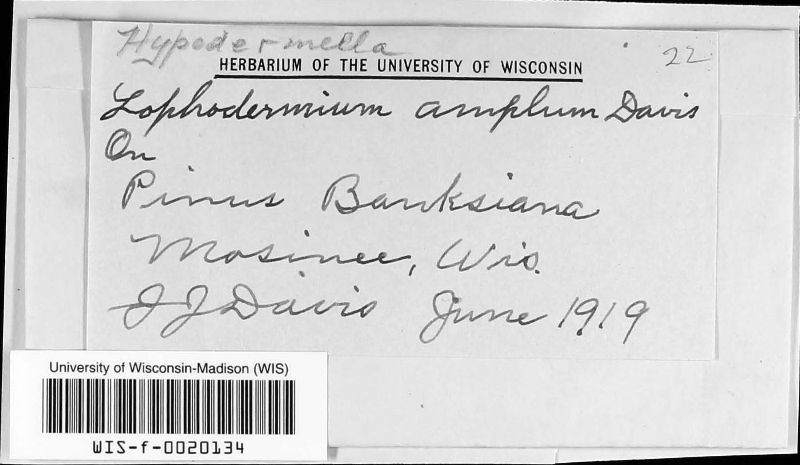 Hypodermella
22
HERBARIUM OF THE UNIVERSITY OF WISCONSIN
Lophodermium amplum Davis
On
Pinus Banksiana
Mosinee, Wis.
J J Davis June 1919
University of Wisconsin-Madison (WIS)
WIS-f-0020134